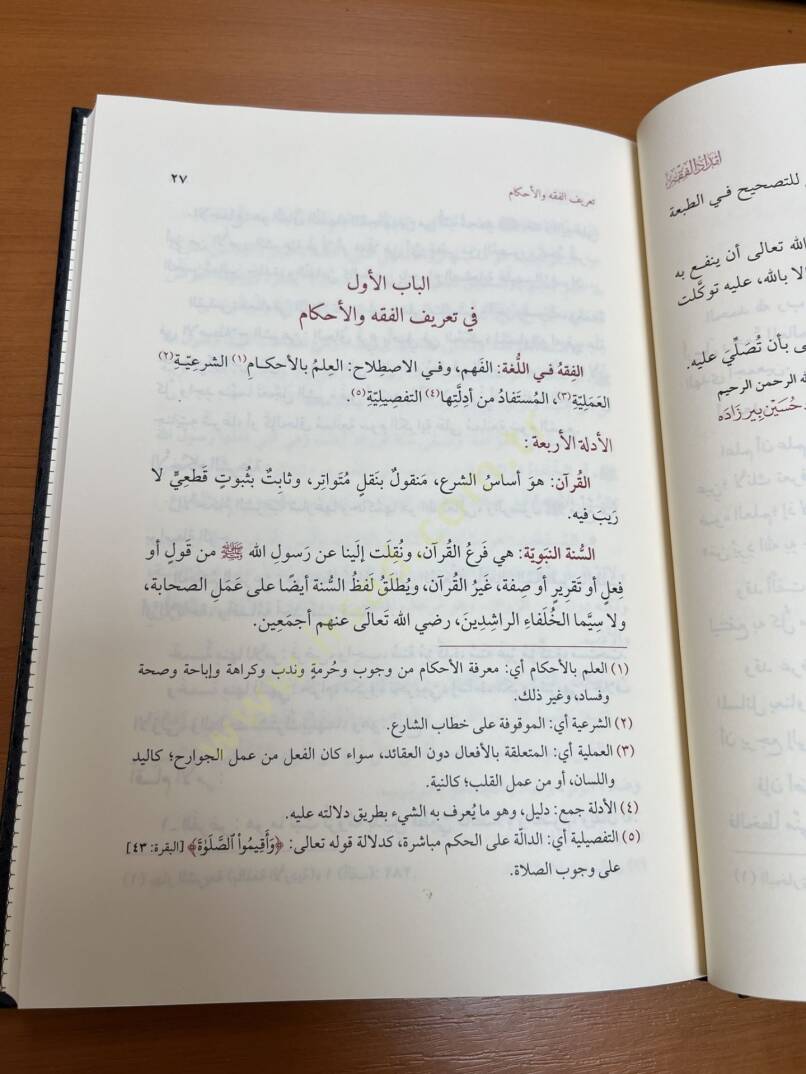 تعريف الفقه والأحكام
٢٧
الباب الأول
في تعريف الفقه والأحكام
الفِقهُ فـي اللُّغة: الفَهم، وفـي الاصطِلاح: العِلمُ بالأحكـامِ(١) الشرعيّـةِ(٢)
العَمَليّةِ(٣)، المُستَفادُ مِن أدِلَّتِها(٤) التفصِيليّةِ(٥).
الأدلة الأربعة:
القُرآن: هوَ أساسُ الشرع، مَنقولٌ بنَقلٍ مُتَواتِر، وثابِتٌ بثُبوتٍ قَطعِيٍّ لا
رَيبَ فيه.
السُّنة النبَويّة: هي فَرعُ القُرآن، ونُقِلَت إلَينا عن رَسولِ الله ﷺ من قَولٍ أو
فِعلٍ أو تَقرِيرٍ أو صِفة، غَيرُ القُرآن، ويُطلَقُ لَفظُ السُّنة أيضًا على عَمَلِ الصحابة،
ولا سِيَّما الخُلَفاءِ الراشِدِينَ، رضي الله تَعالَى عنهم أجمَعِين.
(١) العلم بالأحكام أي: معرفة الأحكام من وجوب وحُرمةٍ وندب وكراهة وإباحة وصحة
وفساد، وغير ذلك.
(٢) الشرعية أي: الموقوفة على خطاب الشارع.
(٣) العملية أي: المتعلقة بالأفعال دون العقائد، سواء كان الفعل من عمل الجوارح؛ كاليد
واللسان، أو من عمل القلب؛ كالنية.
(٤) الأدلة جمع: دليل، وهو ما يُعرف به الشيء بطريق دلالته عليه.
(٥) التفصيلية أي: الدالّة على الحكم مباشرة، كدلالة قوله تعالى: ﴿وَأَقِيمُواْ ٱلصَّلَوٰةَ﴾ [البقرة: ٤٣]
على وجوب الصلاة.
للتصحيح فـي الطبعة
الله تعالى أن ينفـع به
إلا بالله، عليه توكَّلت
بأن تُصَلِّيَ عليه.
الله الرحمن الرحيم
حُسَيْن بِير زَادَه